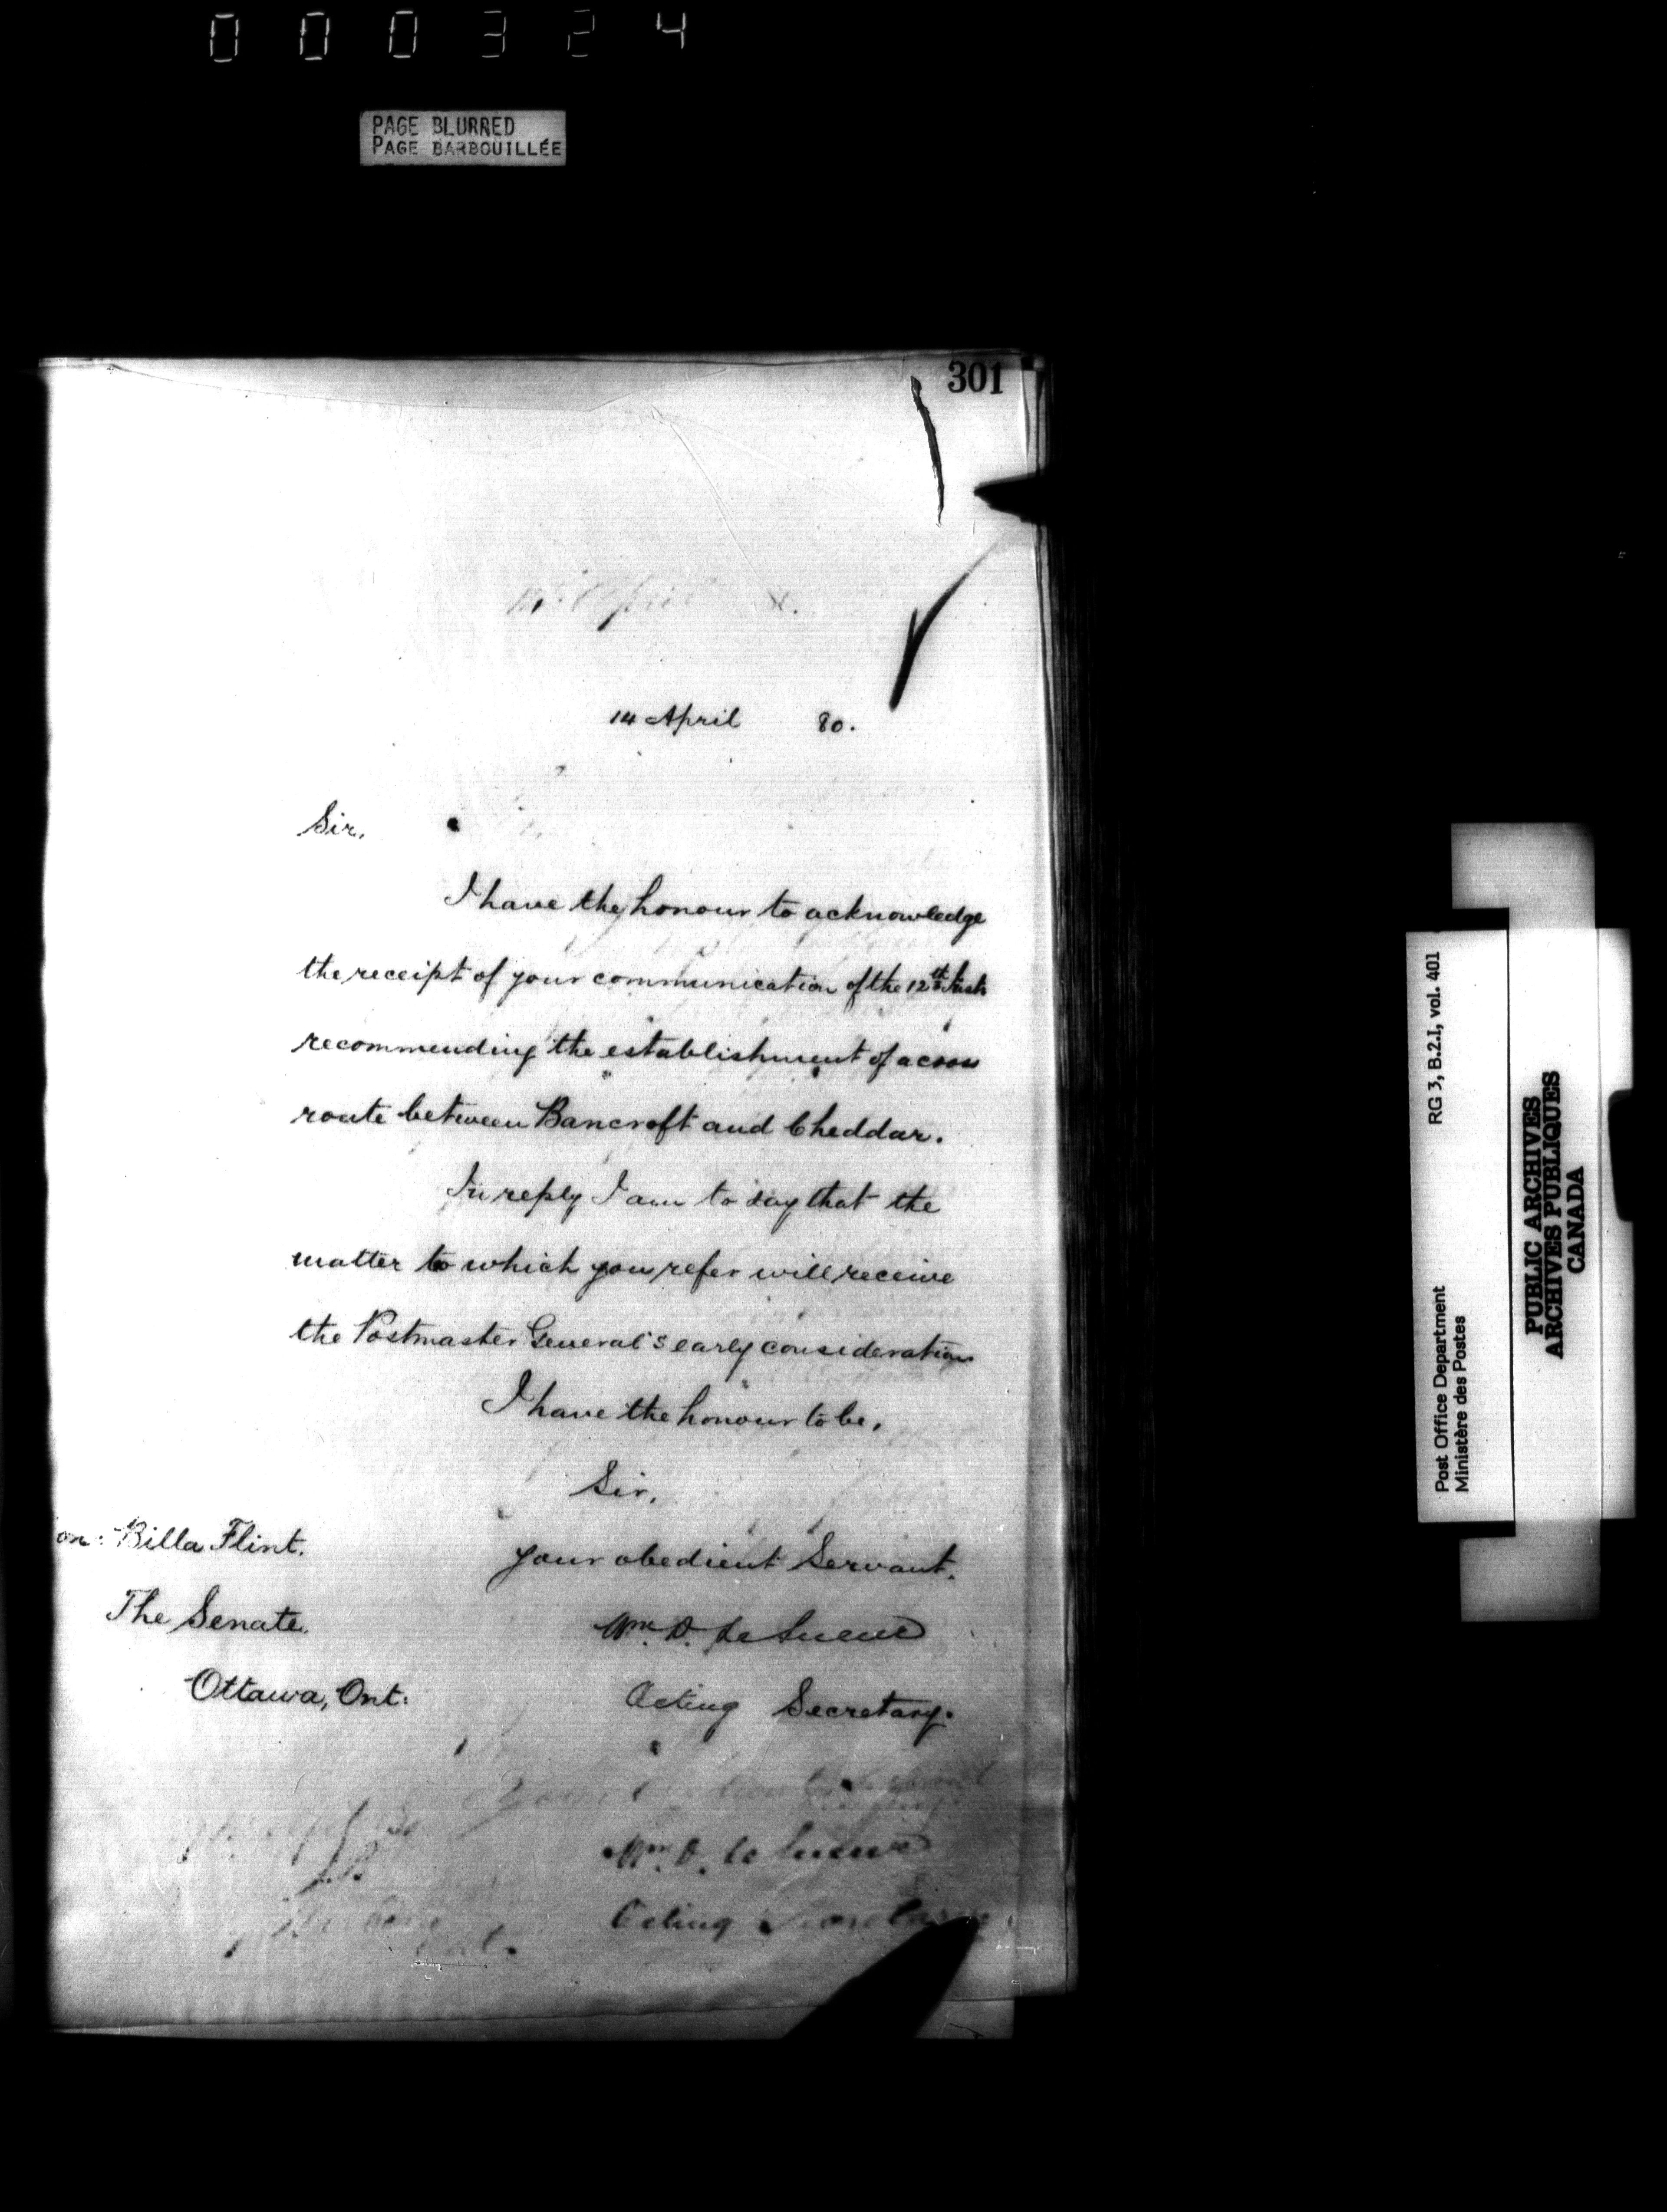 000324
PAGE BLURRED
PAGE BARBOUILLÉE
301
April
14 April 80.
Sir,
I have the honour to acknowledge
the receipt of your communication of the 12th Inst
recommending the establishment of a cross
route between Bancroft and Cheddar.
In reply I am to say that the
matter to which you refer will receive
the Postmaster General's early consideration
I have the honour to be,
Sir,
your obedient Servant.
on: Billa Flint.
The Senate
Ottawa, Ont:
Wm. D. Le Sueur
Acting Secretary.
Wm. D. Le Sueur
Acting Secretary
RG 3, B.2.I, vol. 401
Post Office Department
Ministère des Postes
PUBLIC ARCHIVES
ARCHIVES PUBLIQUES
CANADA